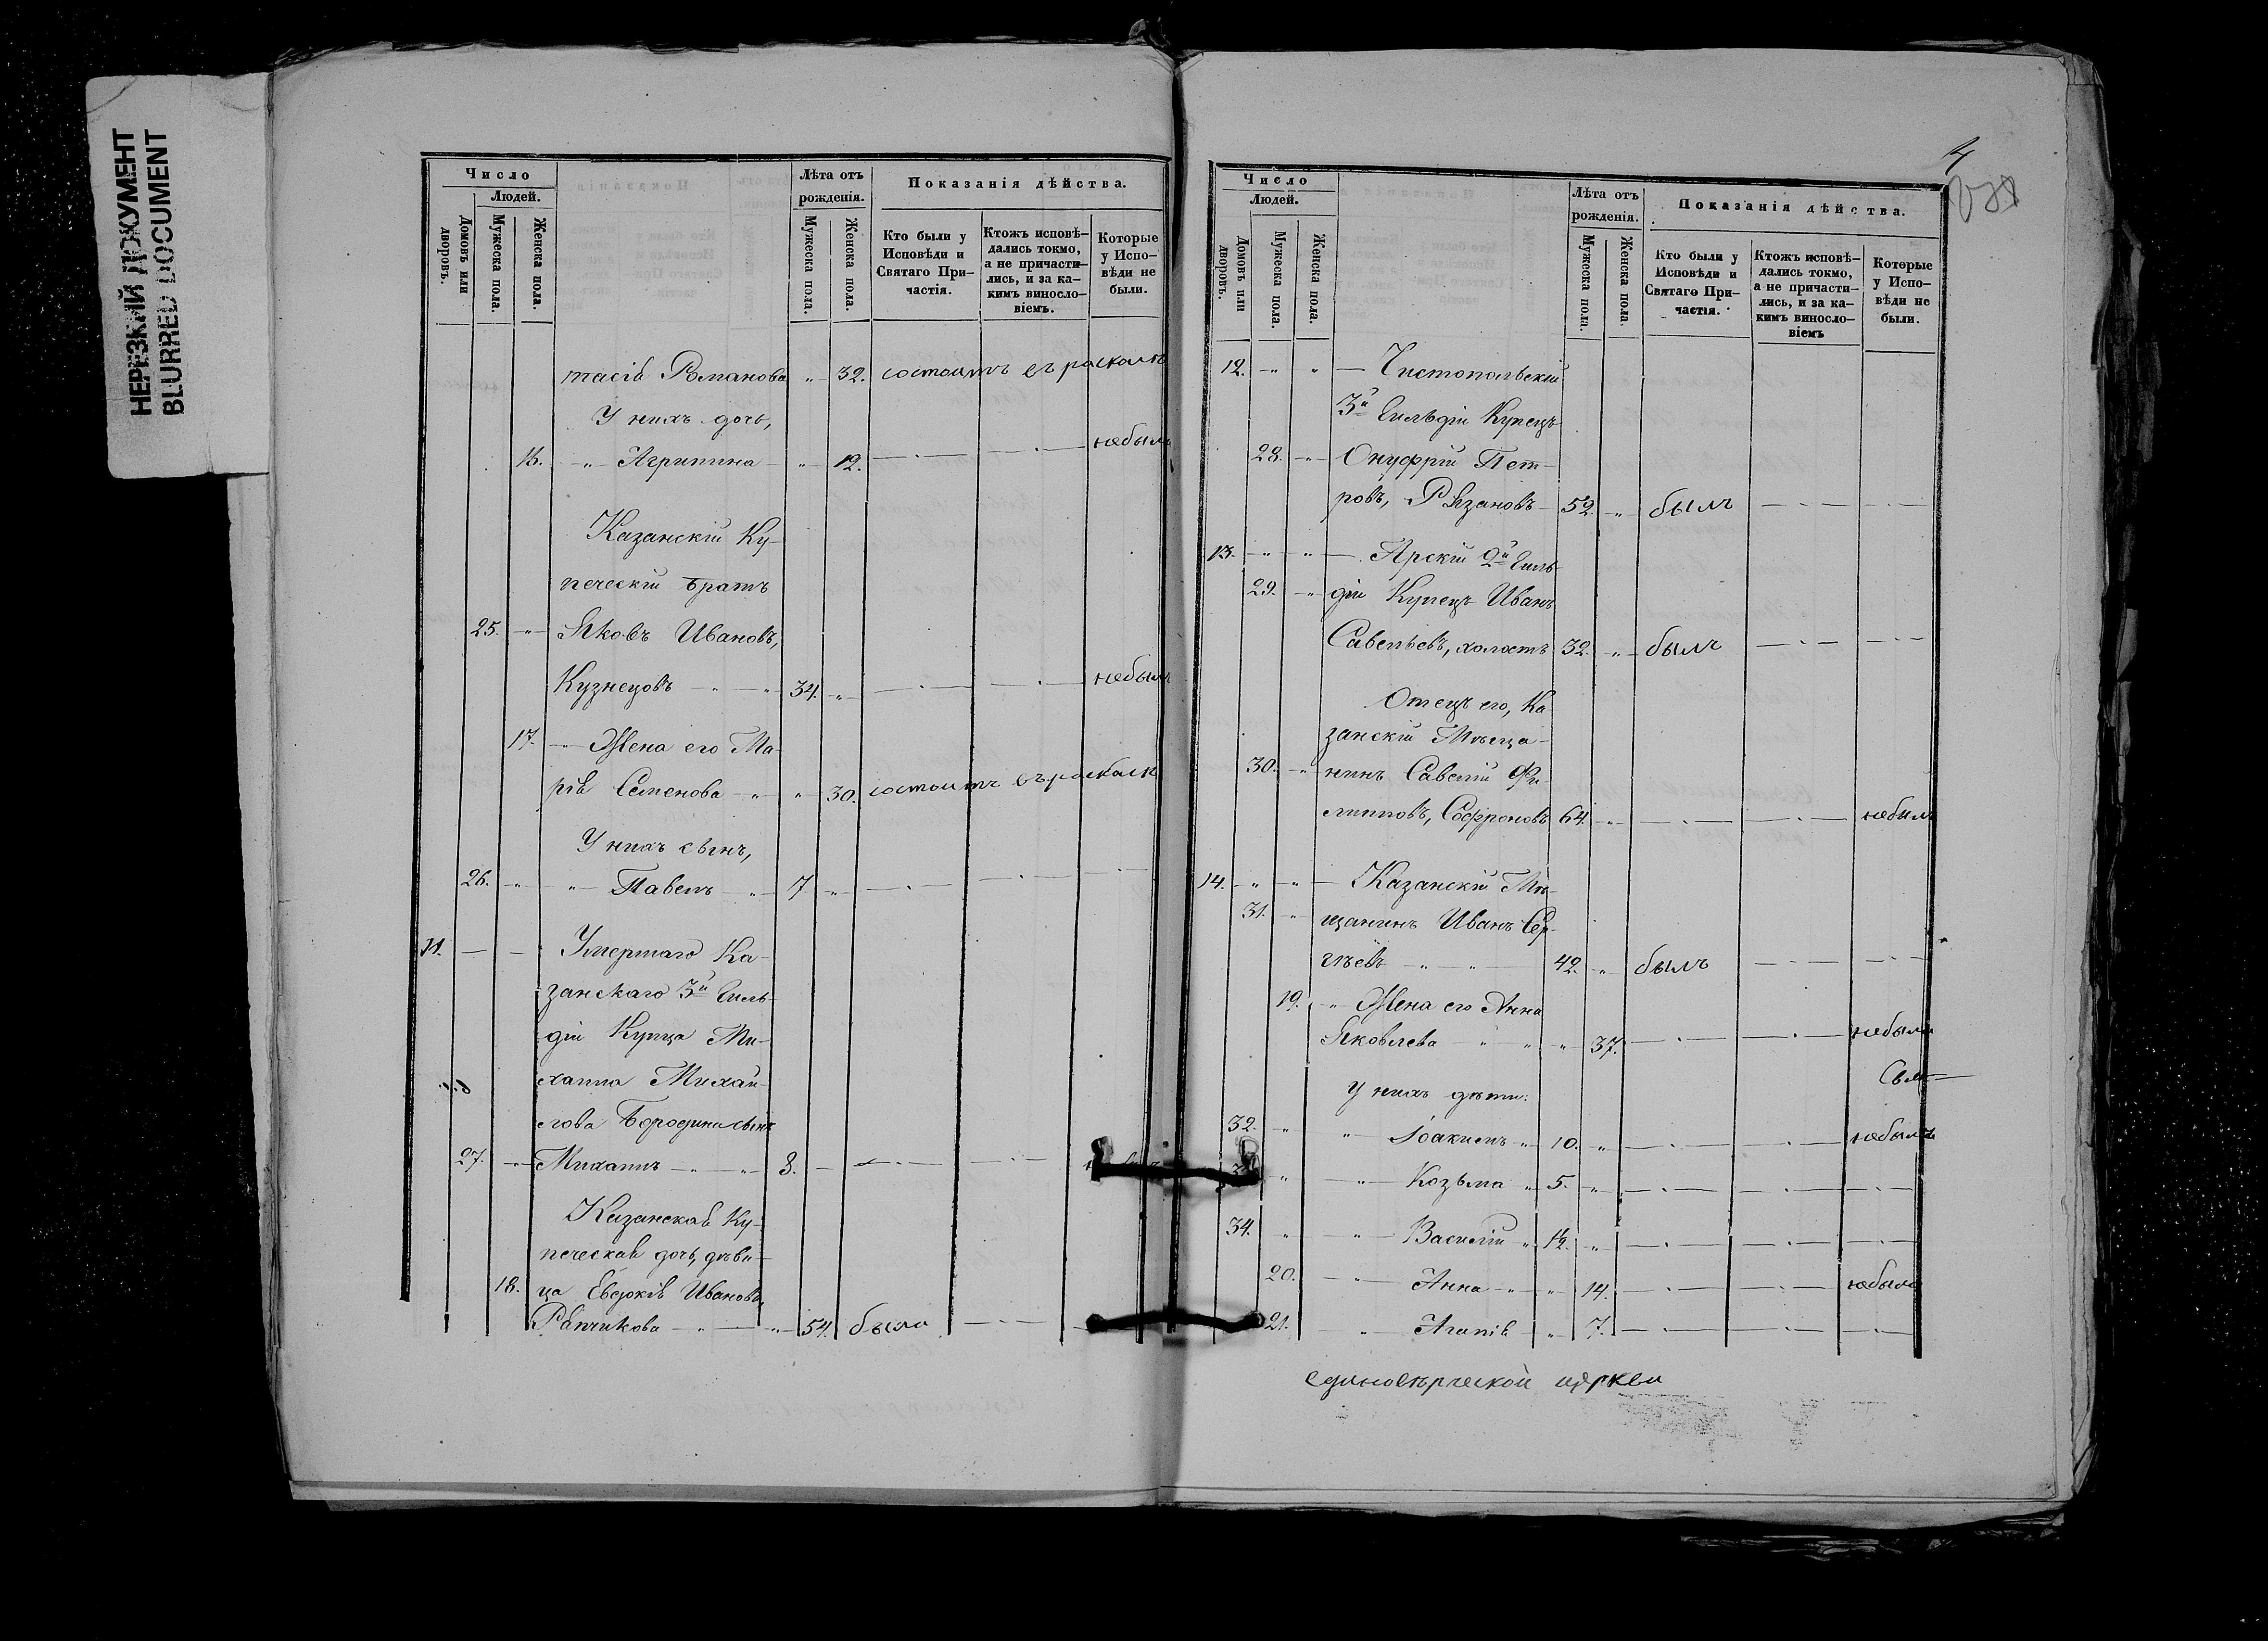 НЕРЕЗКІЙ ДОКУМЕНТ
BLURRED DOCUMENT
Число
Людей.
Домовъ или дворовъ.
Мужеска пола.
Женска пола.
Лѣта отъ рожденія.
Мужеска пола.
Женска пола.
Показанія дѣйства.
Кто были у Исповѣди и Святаго Причастія.
Ктожъ исповѣ-
дались токмо,
а не причасти-
лись, и за ка-
кимъ винosло-
віемъ.
Которые
у Испо-
вѣди не
были.
тасія Романова " 32. состоитъ въ расколѣ
У нихъ дочь,
16. " Агрипина " 12. небыла
Казанскій Ку-
печескій братъ
25. " Яковъ Ивановъ,
Кузнецовъ " " 34. " небылъ
17. " Жена его Ма-
рія Семенова " " 30. состоитъ въ расколѣ
У нихъ сынъ,
26. " " Павелъ " 7 "
11. — — Умершаго Ка-
занскаго 3й Гиль-
діи Купца Ми-
хаила Михай-
лова Бородина сынъ
27. " Михаилъ " 8.
Казанская Ку-
печеская дочь, дѣви-
18. ца Евдокія Иванова,
Рапчикова " " 54. была
4
Число
Людей.
Домовъ или дворовъ.
Мужеска пола.
Женска пола.
Лѣта отъ рожденія.
Мужеска пола.
Женска пола.
Показанія дѣйства.
Кто были у
Исповѣди и
Святаго При-
частія.
Ктожъ исповѣ-
дались токмо,
а не причасти-
лись, и за ка-
кимъ винocло-
віемъ
Которые
у Испо-
вѣди не
были.
12. " " — Чистопольскій
3й Гильдіи Купецъ
28. " Онуфрій Пет-
ровъ, Рязановъ 52. " былъ
13. " " — Арскій 2й Гиль-
29. " діи Купецъ Иванъ
Савельевъ, холостъ 32. " былъ
Отецъ его, Ка-
занскій Мѣща-
30. " нинъ Савелій Фи-
липповъ, Софроновъ 64. " небылъ
14. " " — Казанскій Мѣ-
31. " щанинъ Иванъ Сер-
гѣевъ " " 42. " былъ
19. " Жена его Анна
Яковлева " " " 37. небыла
У нихъ дѣти:
32. " " Іоакимъ " 10. " небылъ
33. " " Козьма " 5. "
34. " " Василій " 12. "
20. " Анна " " 14. небыла
21. " Агапія " 7.
единовѣрческой церкви